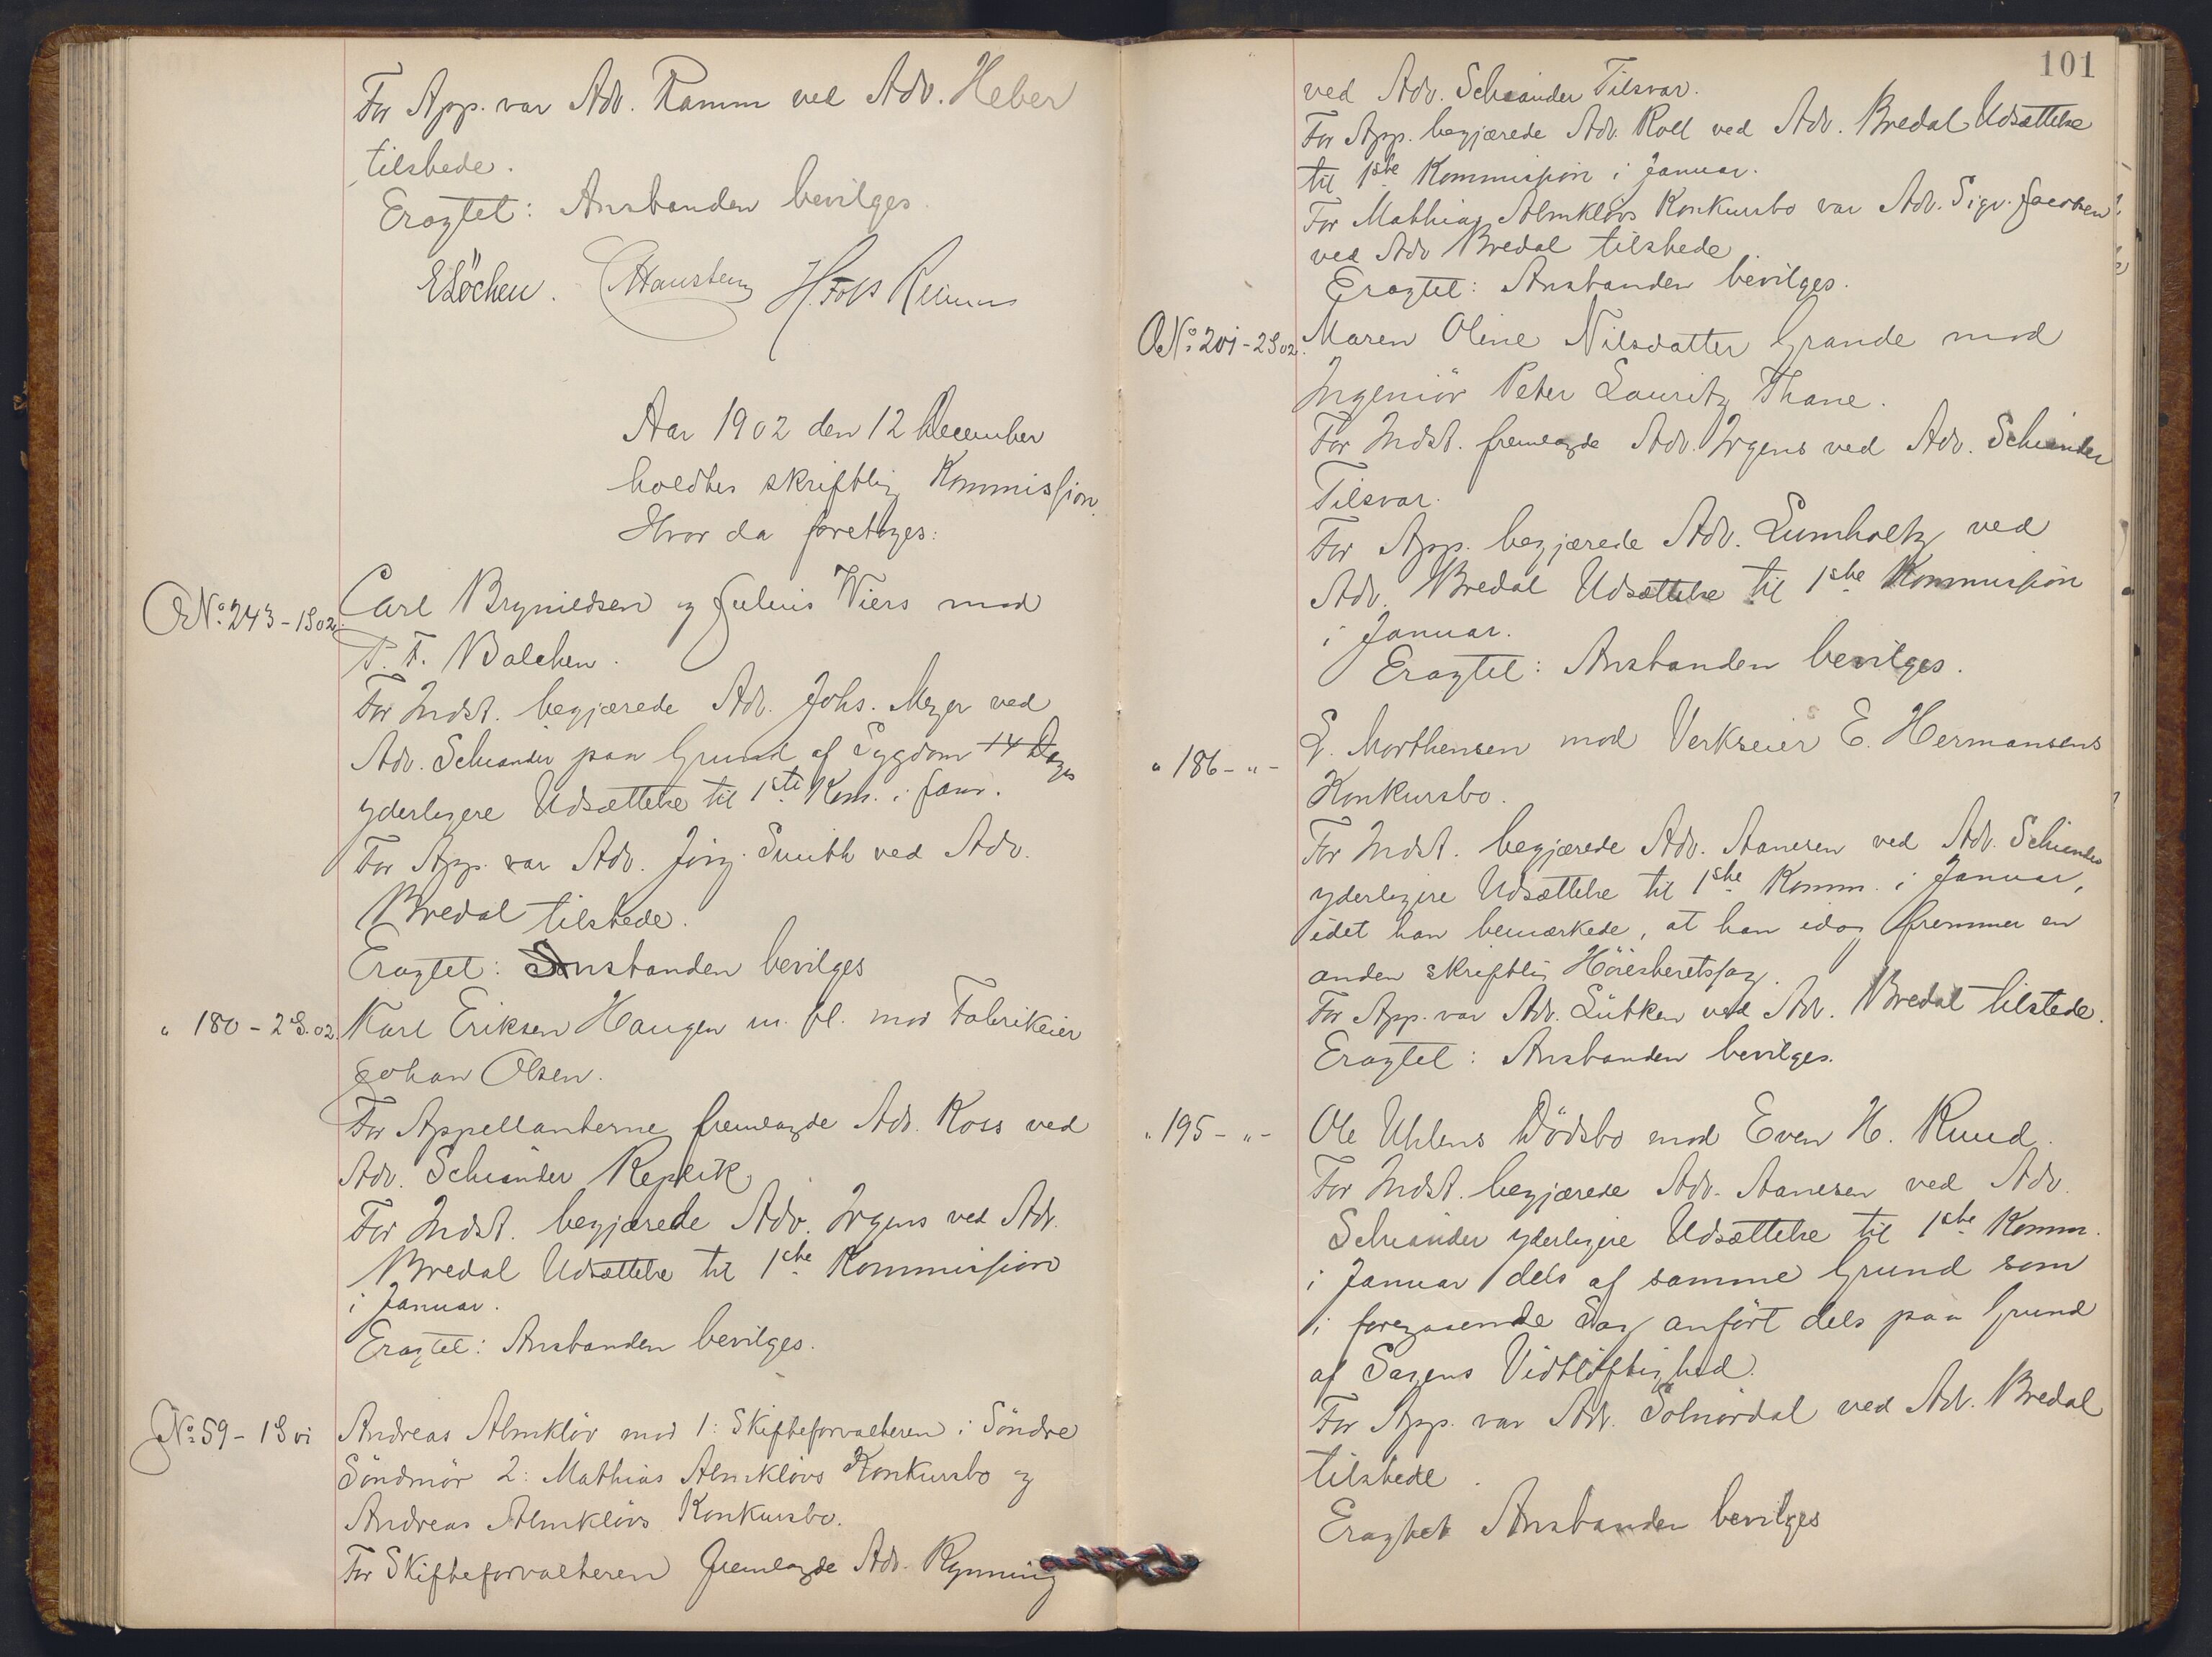 For App. var Adv. Ramm ved Adv. Heber
tilstede.
Eragtet: Anstanden bevilges.
E Löchen. Hansteen
Aar 1902 den 12 December
holdtes skriftlig Kommission.
Hvor da foretoges:
No. 243 - 1S 02. Carl Brynildsen og Julius Wiers mod
P. F. Balchen.
For Indst. begjærede Adv. Johs. Meyer ved
Adv. Schiander paa Grund af Sygdom 14 Dages
yderligere Udsættelse til 1ste Kom. i Janr.
For App. var Adv. Jörg. Smith ved Adv.
Bredal tilstede.
Eragtet: Anstanden bevilges
" 180 - 2S. 02. Karl Eriksen Haugen m. fl. mod Fabrikeier
Johan Olsen.
For Appellanterne fremlagde Adv. Koss ved
Adv. Schiander Replik
For Indst. begjærede Adv. Irgens ved Adv.
Bredal Udsættelse til 1ste Kommission
i Januar.
Eragtet: Anstanden bevilges.
No. 59 - 1S 01 Andreas Almklöv mod 1: Skifteforvalteren i Söndre
Söndmör 2: Mathias Almklövs Konkursbo og
Andreas Almklövs Konkursbo.
For Skifteforvalteren fremlagde Adv. Rynning
101
ved Adv. Schiander Tilsvar.
For App. begjærede Adv. Roll ved Adv. Bredal Udsættelse
til 1ste Kommission i Januar.
For Mathias Almklövs Konkursbo var Adv. Sigv. Jacobsen
ved Adv Bredal tilstede
Eragtet: Anstanden bevilges.
No. 201 - 2S 02. Maren Oline Nilsdatter Grande mod
Ingeniör Peter Lauritz Thane.
For Indst. fremlagde Adv. Irgens ved Adv. Schiander
Tilsvar.
For App. begjærede Adv. Lumholtz ved
Adv. Bredal Udsættelse til 1ste Kommission
i Januar.
Eragtet: Anstanden bevilges.
" 186 - " - L. Morthensen mod Verkseier E. Hermansens
Konkursbo.
For Indst. begjærede Adv. Aanesen ved Adv. Schiander
yderligere Udsættelse til 1ste Komm. i Januar,
idet han bemærkede, at han idag fremmer en
anden skriftlig Höiesteretssag.
For App. var Adv. Lütken ved Adv. Bredal tilstede.
Eragtet: Anstanden bevilges.
" 195 - " - Ole Uhlens Dödsbo mod Even H. Ruud.
For Indst. begjærede Adv. Aanesen ved Adv.
Schiander yderligere Udsættelse til 1ste Komm.
i Januar dels af samme Grund som
i foregaaende Sag anfört dels paa Grund
af Sagens Vidtlöftighed.
For App. var Adv. Solnördal ved Adv. Bredal
tilstede.
Eragtet Anstanden bevilges